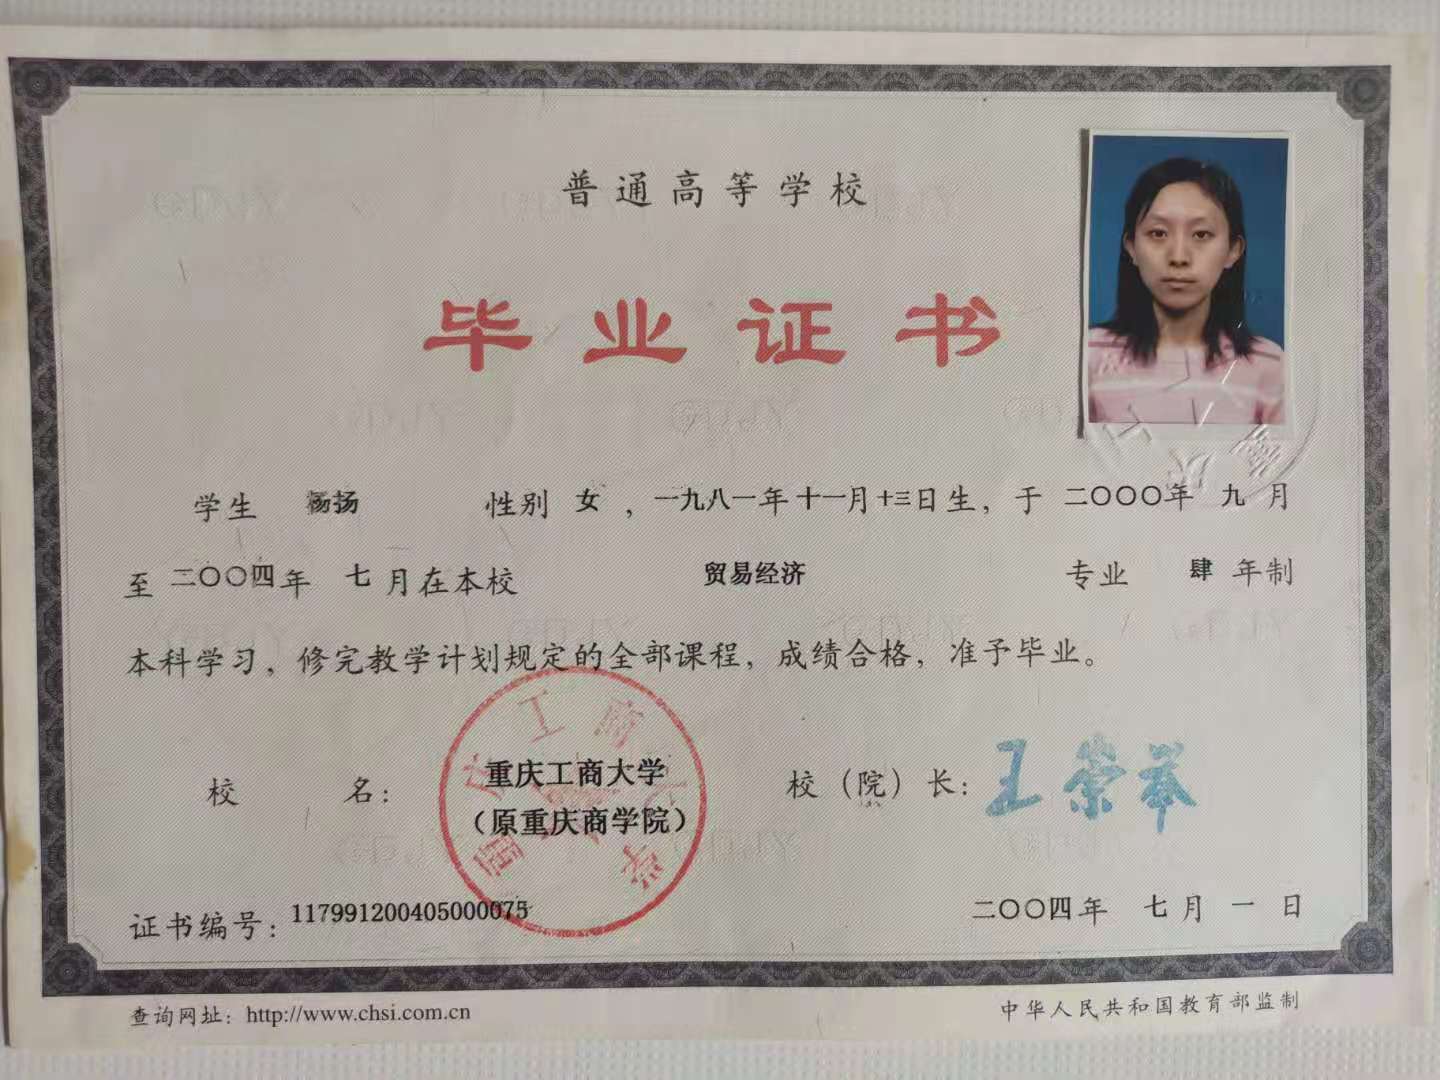 普通高等学校
毕业证书
学生 杨扬 性别 女，一九八一年十一月十三日生，于 二〇〇〇年 九 月
至 二〇〇四年 七 月在本校 贸易经济 专业 肆 年制
本科学习，修完教学计划规定的全部课程，成绩合格，准予毕业。
校 名： 重庆工商大学 校（院）长：王崇举
（原重庆商学院）
重庆工商大学
证书编号：117991200405000075 二〇〇四年 七月 一 日
查询网址：http://www.chsi.com.cn 中华人民共和国教育部监制